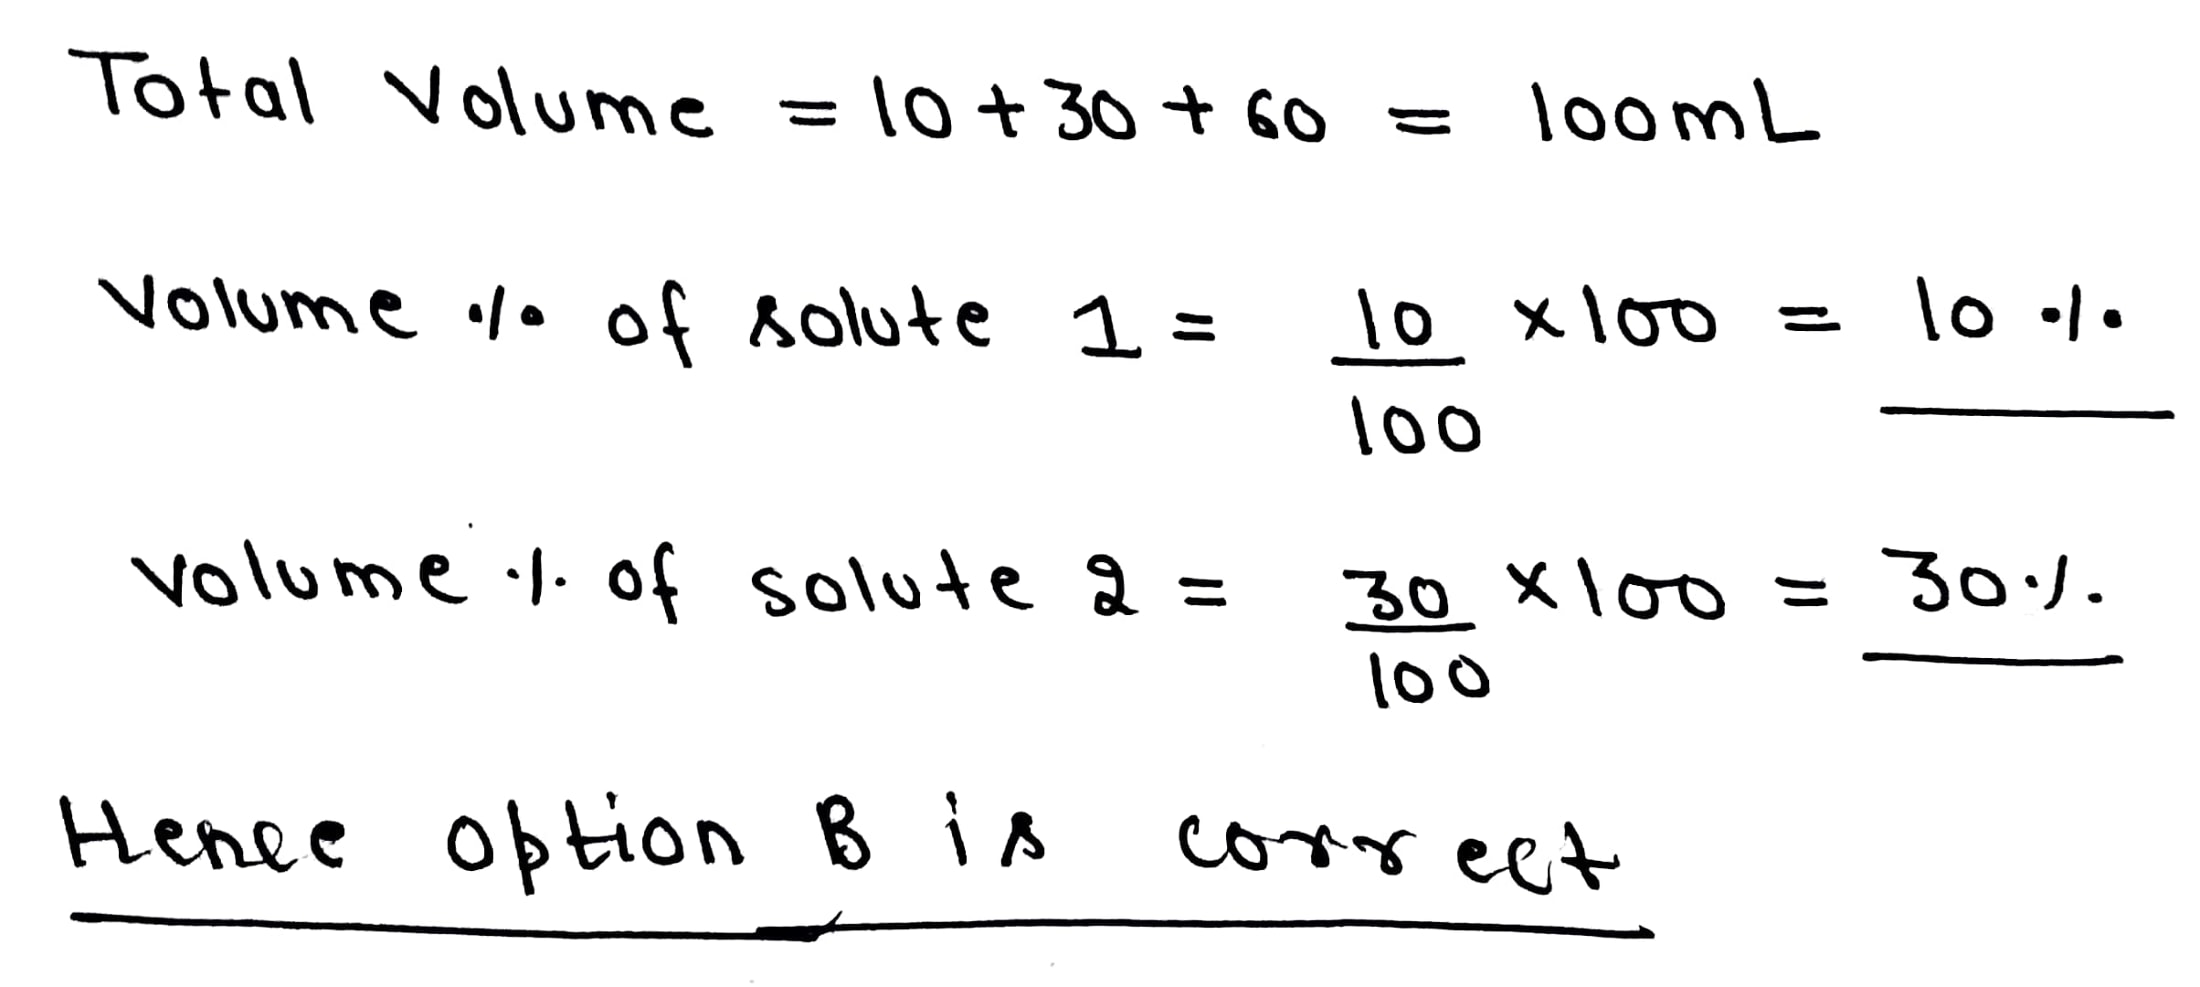 Total Volume = 10 + 30 + 60 = 100mL
Volume % of solute 1 = 10/100 × 100 = 10 %
Volume % of solute 2 = 30/100 × 100 = 30%
Hence option B is correct